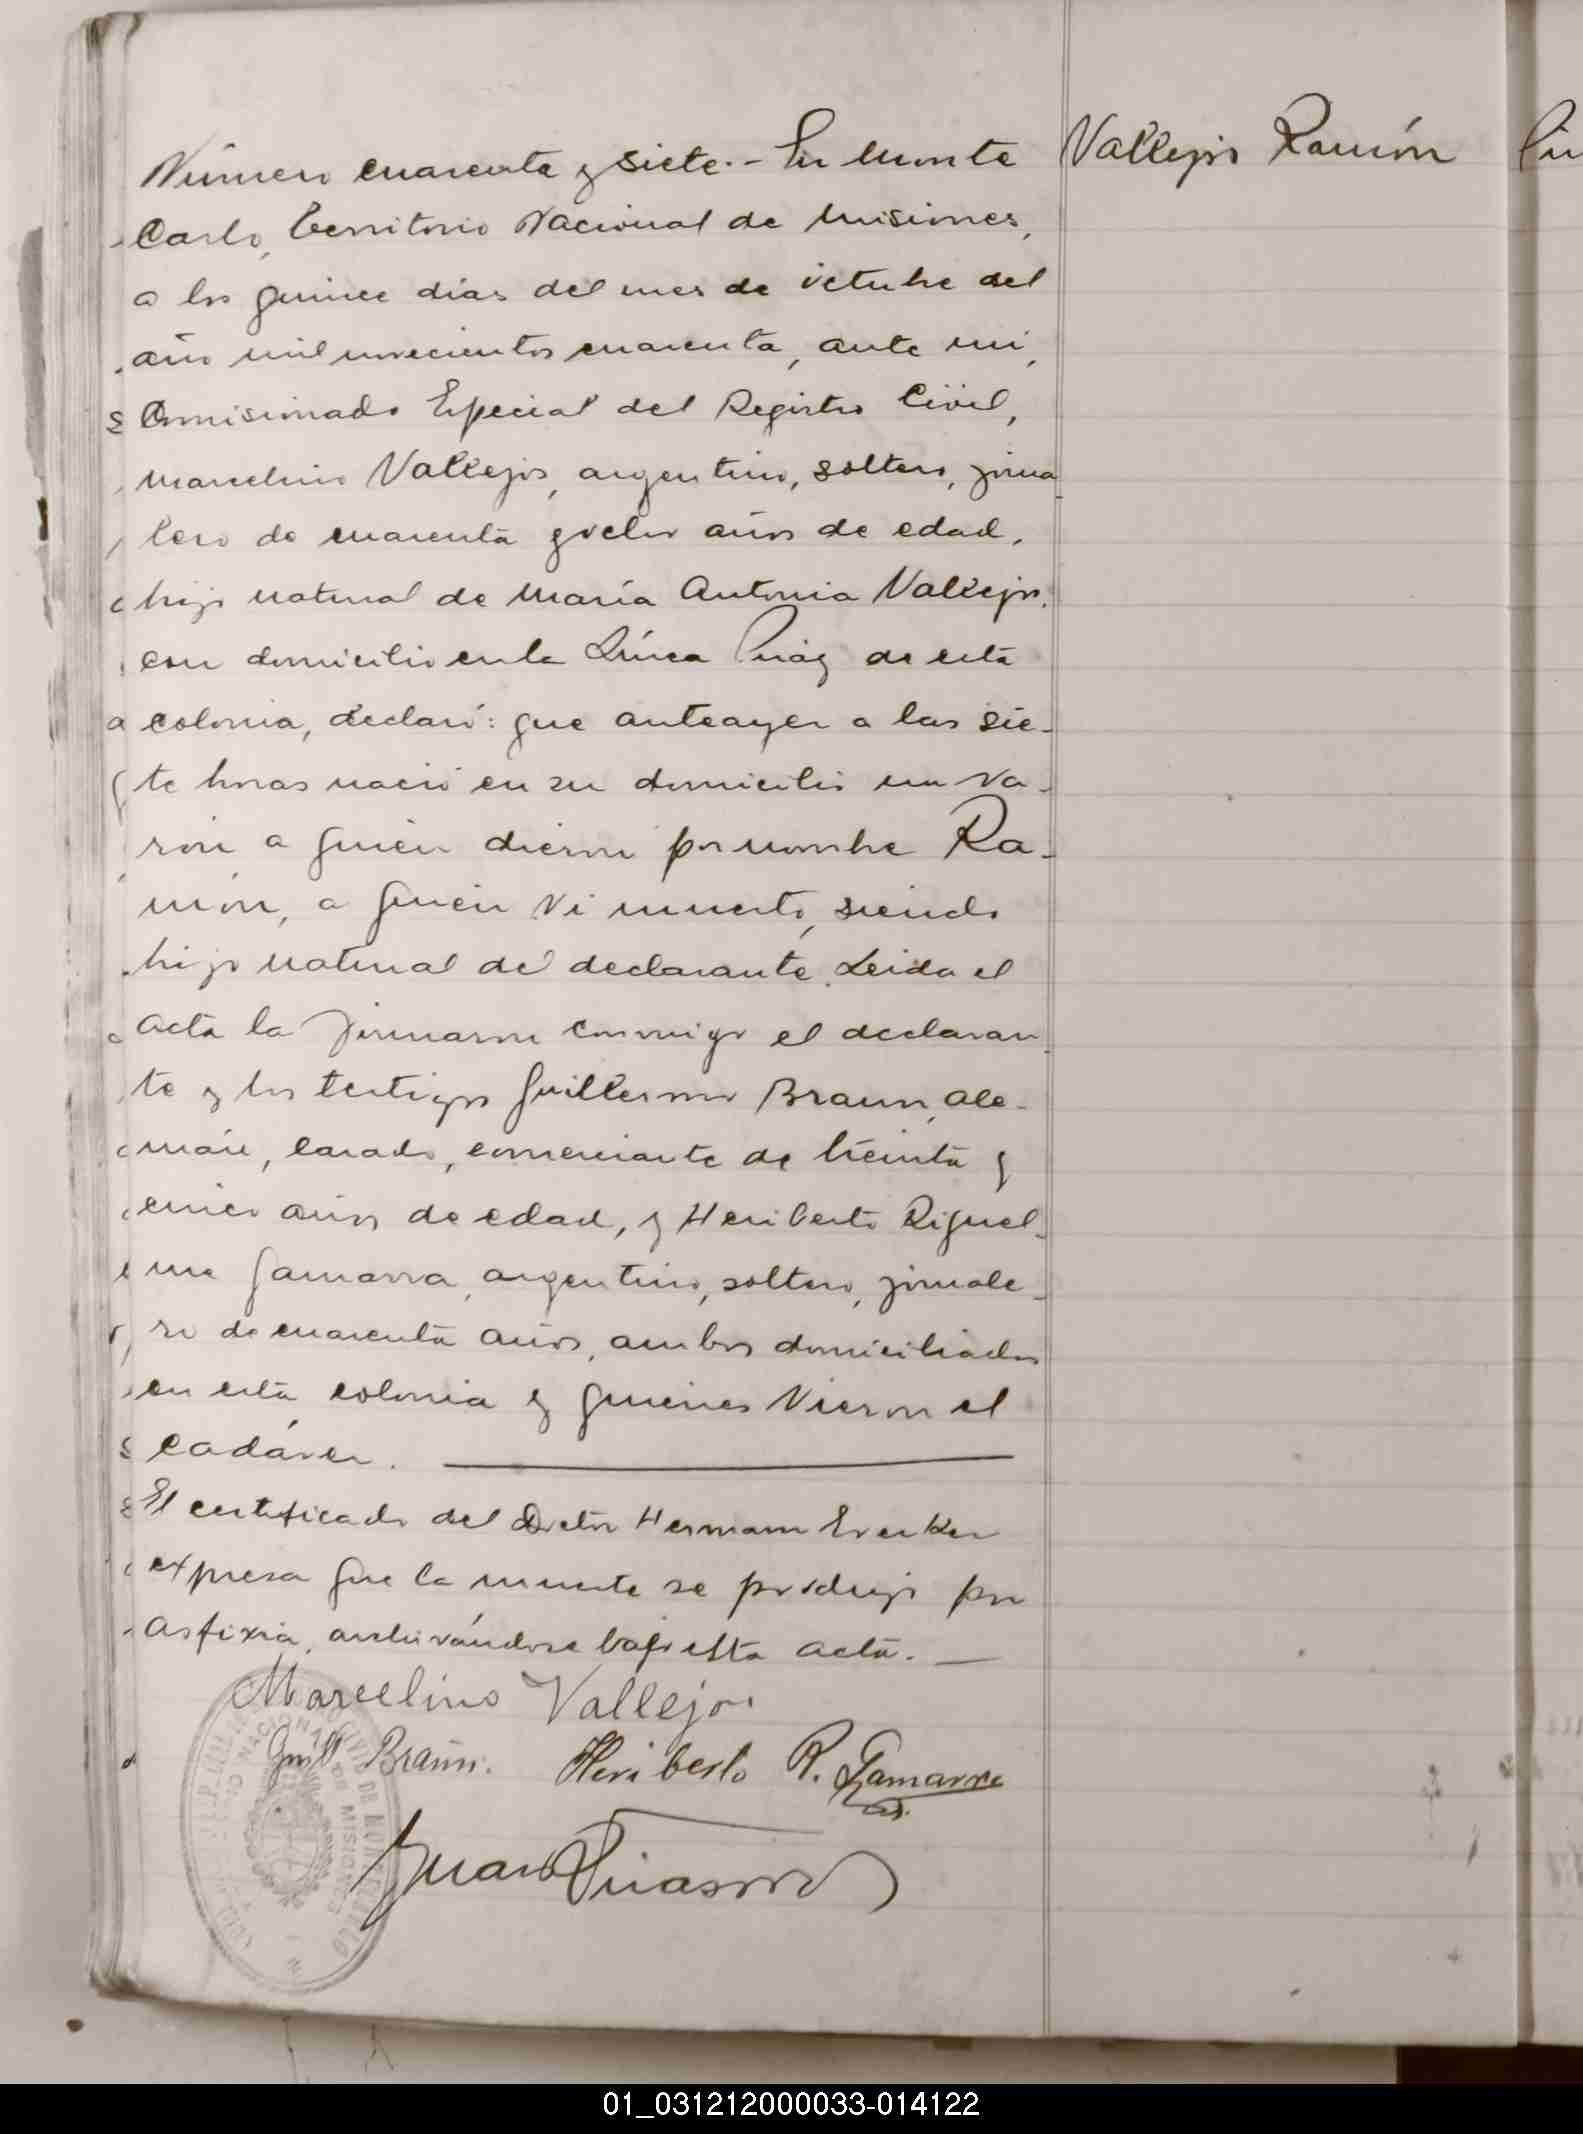 Número cuarenta y siete.- En Monte
Carlo, Territorio Nacional de Misiones,
a los quince días del mes de octubre del
año mil novecientos cuarenta, ante mi,
Comisionado Especial del Registro Civil,
Marcelino Vallejos, argentino, soltero, jorna
lero de cuarenta y ocho años de edad,
hijo natural de María Antonia Vallejos,
con domicilio en la Línea Puág de esta
colonia, declaró: que anteayer a las sie-
te horas nació en su domicilio un va-
rón a quién dieron por nombre Ra-
món, a quién vi muerto, siendo
hijo natural del declarante. Leida el
acta la firmaron conmigo el declaran
te y los testigos Guillermo Braun, ale-
mán, casado, comerciante de treinta y
cinco años de edad, y Heriberto Riquel-
me Gamarra, argentino, soltero, jornale-
ro de cuarenta años, ambos domiciliados
en esta colonia y quienes vieron el
cadáver.
El certificado del Doctor Hermann Everken
expresa que la muerte se produjo por
asfixia, archivándose bajo esta acta.
Marcelino Vallejos
Guill Braun. Heriberto R. Gamarra
Juan
Vallejos Ramón
01_031212000033-014122